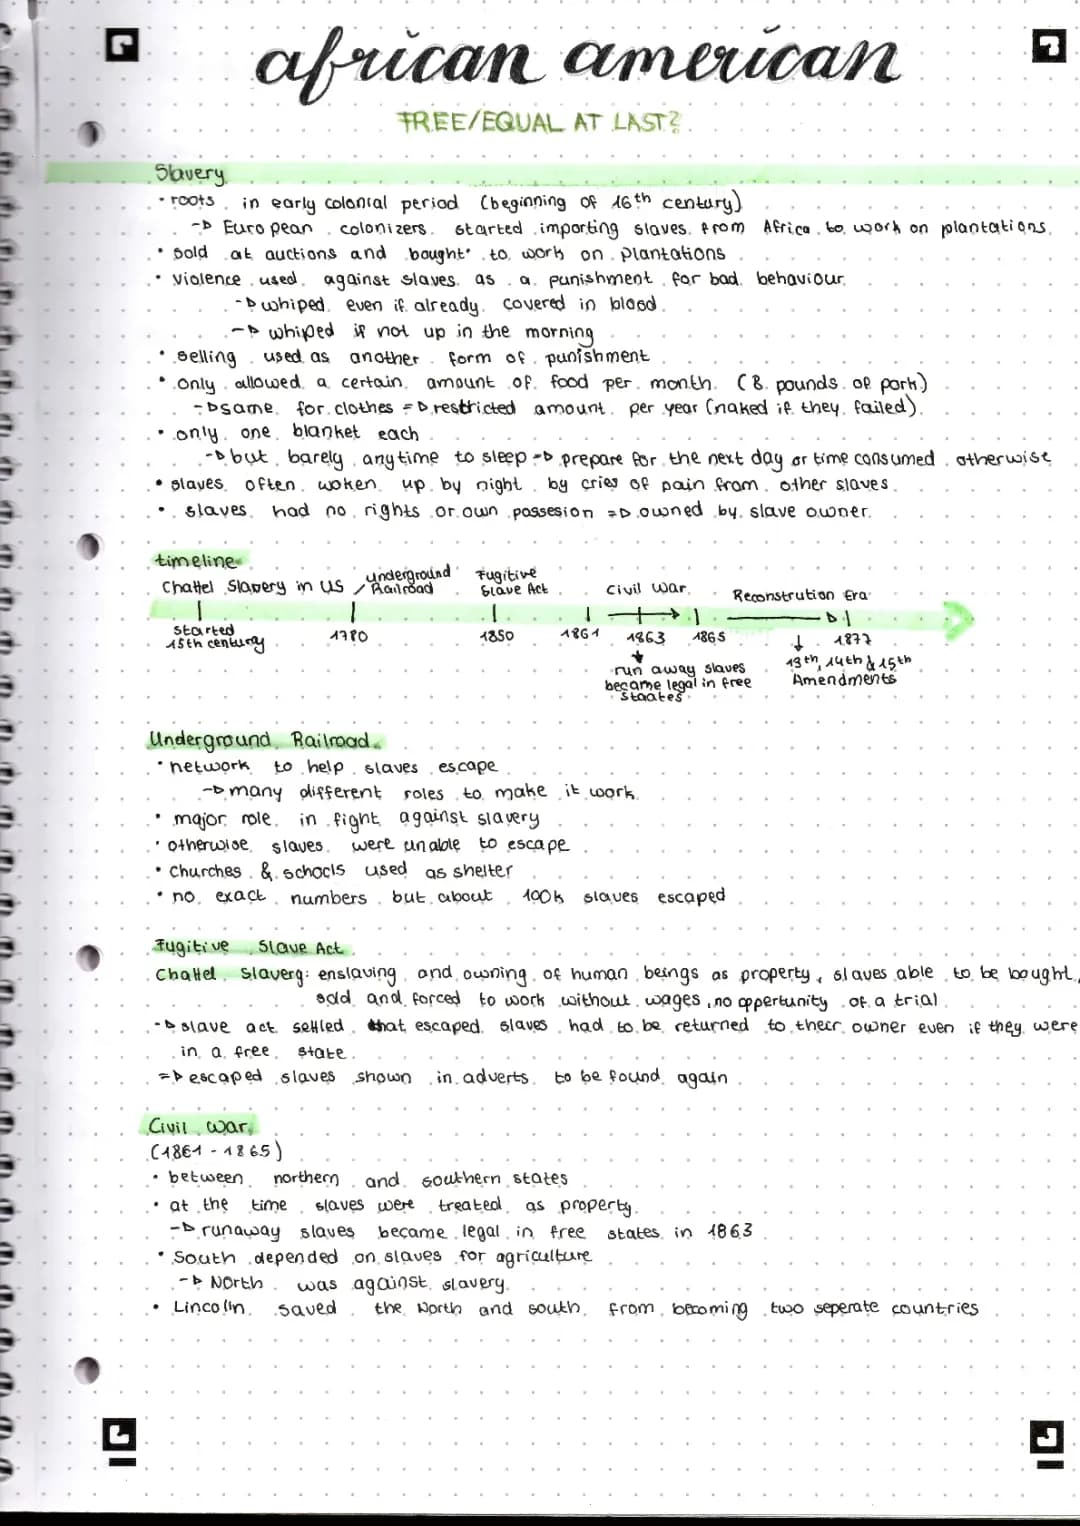 african american
FREE/EQUAL AT LAST?
Slavery
• roots in early colonial period (beginning of 16th century)
-▷ European colonizers started importing slaves from Africa to work on plantations
• sold at auctions and bought to work on plantations
• violence used against slaves as a punishment for bad behaviour
-▷ whiped even if already covered in blood
-▷ whiped if not up in the morning
• selling used as another form of punishment
• only allowed a certain amount of food per month (8 pounds of pork)
-▷ same for clothes =▷ restricted amount per year (naked if they failed)
• only one blanket each
-▷ but barely anytime to sleep -▷ prepare for the next day or time consumed otherwise
• slaves often woken up by night by cries of pain from other slaves
• slaves had no rights or own possesion =▷ owned by slave owner
timeline
Chattel Slavery in US / Underground Railroad Fugitive Slave Act Civil War Reconstrution Era
started 15th century 1780 1850 1861 1863 1865 1877
run away slaves became legal in free staates
13th, 14th & 15th Amendments
Underground Railroad
• network to help slaves escape
-▷ many different roles to make it work
• major role in fight against slavery
• otherwise slaves were unable to escape
• churches & schools used as shelter
• no exact numbers but about 100k slaves escaped
Fugitive Slave Act
Chattel Slaverg: enslaving and owning of human beings as property, slaves able to be bought,
sold and forced to work without wages, no oppertunity of a trial
-▷ slave act settled that escaped slaves had to be returned to their owner even if they were
in a free state
=▷ escaped slaves shown in adverts to be found again
Civil War
(1861 - 1865)
• between northern and southern states
• at the time slaves were treated as property
-▷ runaway slaves became legal in free states in 1863
• South depended on slaves for agriculture
-▷ North was against slavery
• Lincolin saved the North and south from becoming two seperate countries